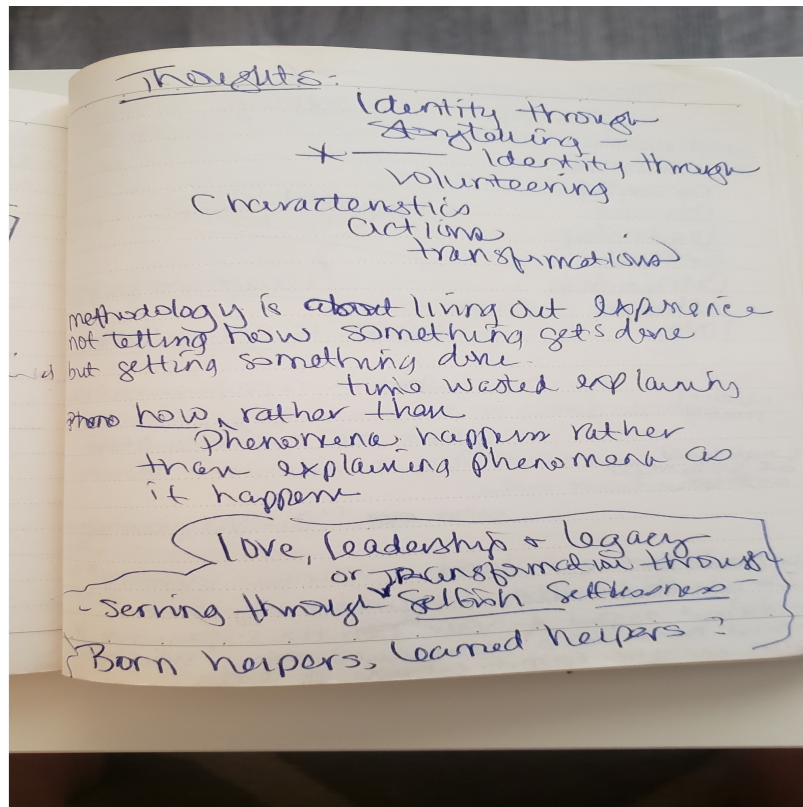 Thoughts:
Identity through
Storytelling -
* Identity through
Volunteering
Characteristics
actions
transformations
methodology is about living out experience
not telling how something gets done
but getting something done.
time wasted explaining
how, rather than
Phenomena happens rather
than explaining phenomena as
it happens
Love, leadership & legacy
or Transformation through
- Serving through Selfish Selflessness -
Born helpers, learned helpers ?